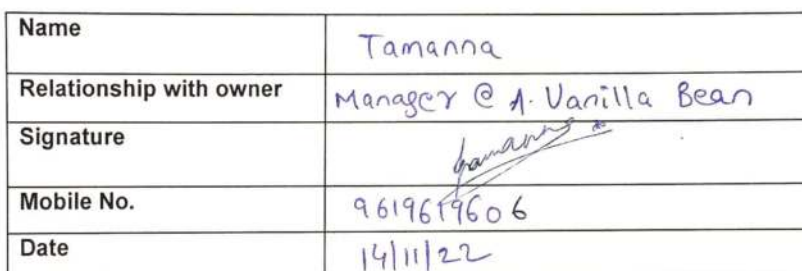 Name Tamanna
Relationship with owner Manager @ A. Vanilla Bean
Signature Tamanna
Mobile No. 9619619606
Date 14/11/22